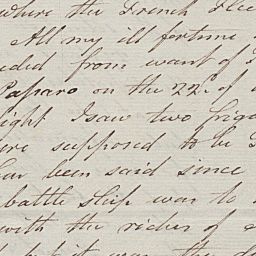 where the French Flee
All my ill fortune
eded from want of
Paparo on the 22d of
ight I saw two frig
ere supposed to be
has been said since
battle ship was to
with the riches of
but it was the